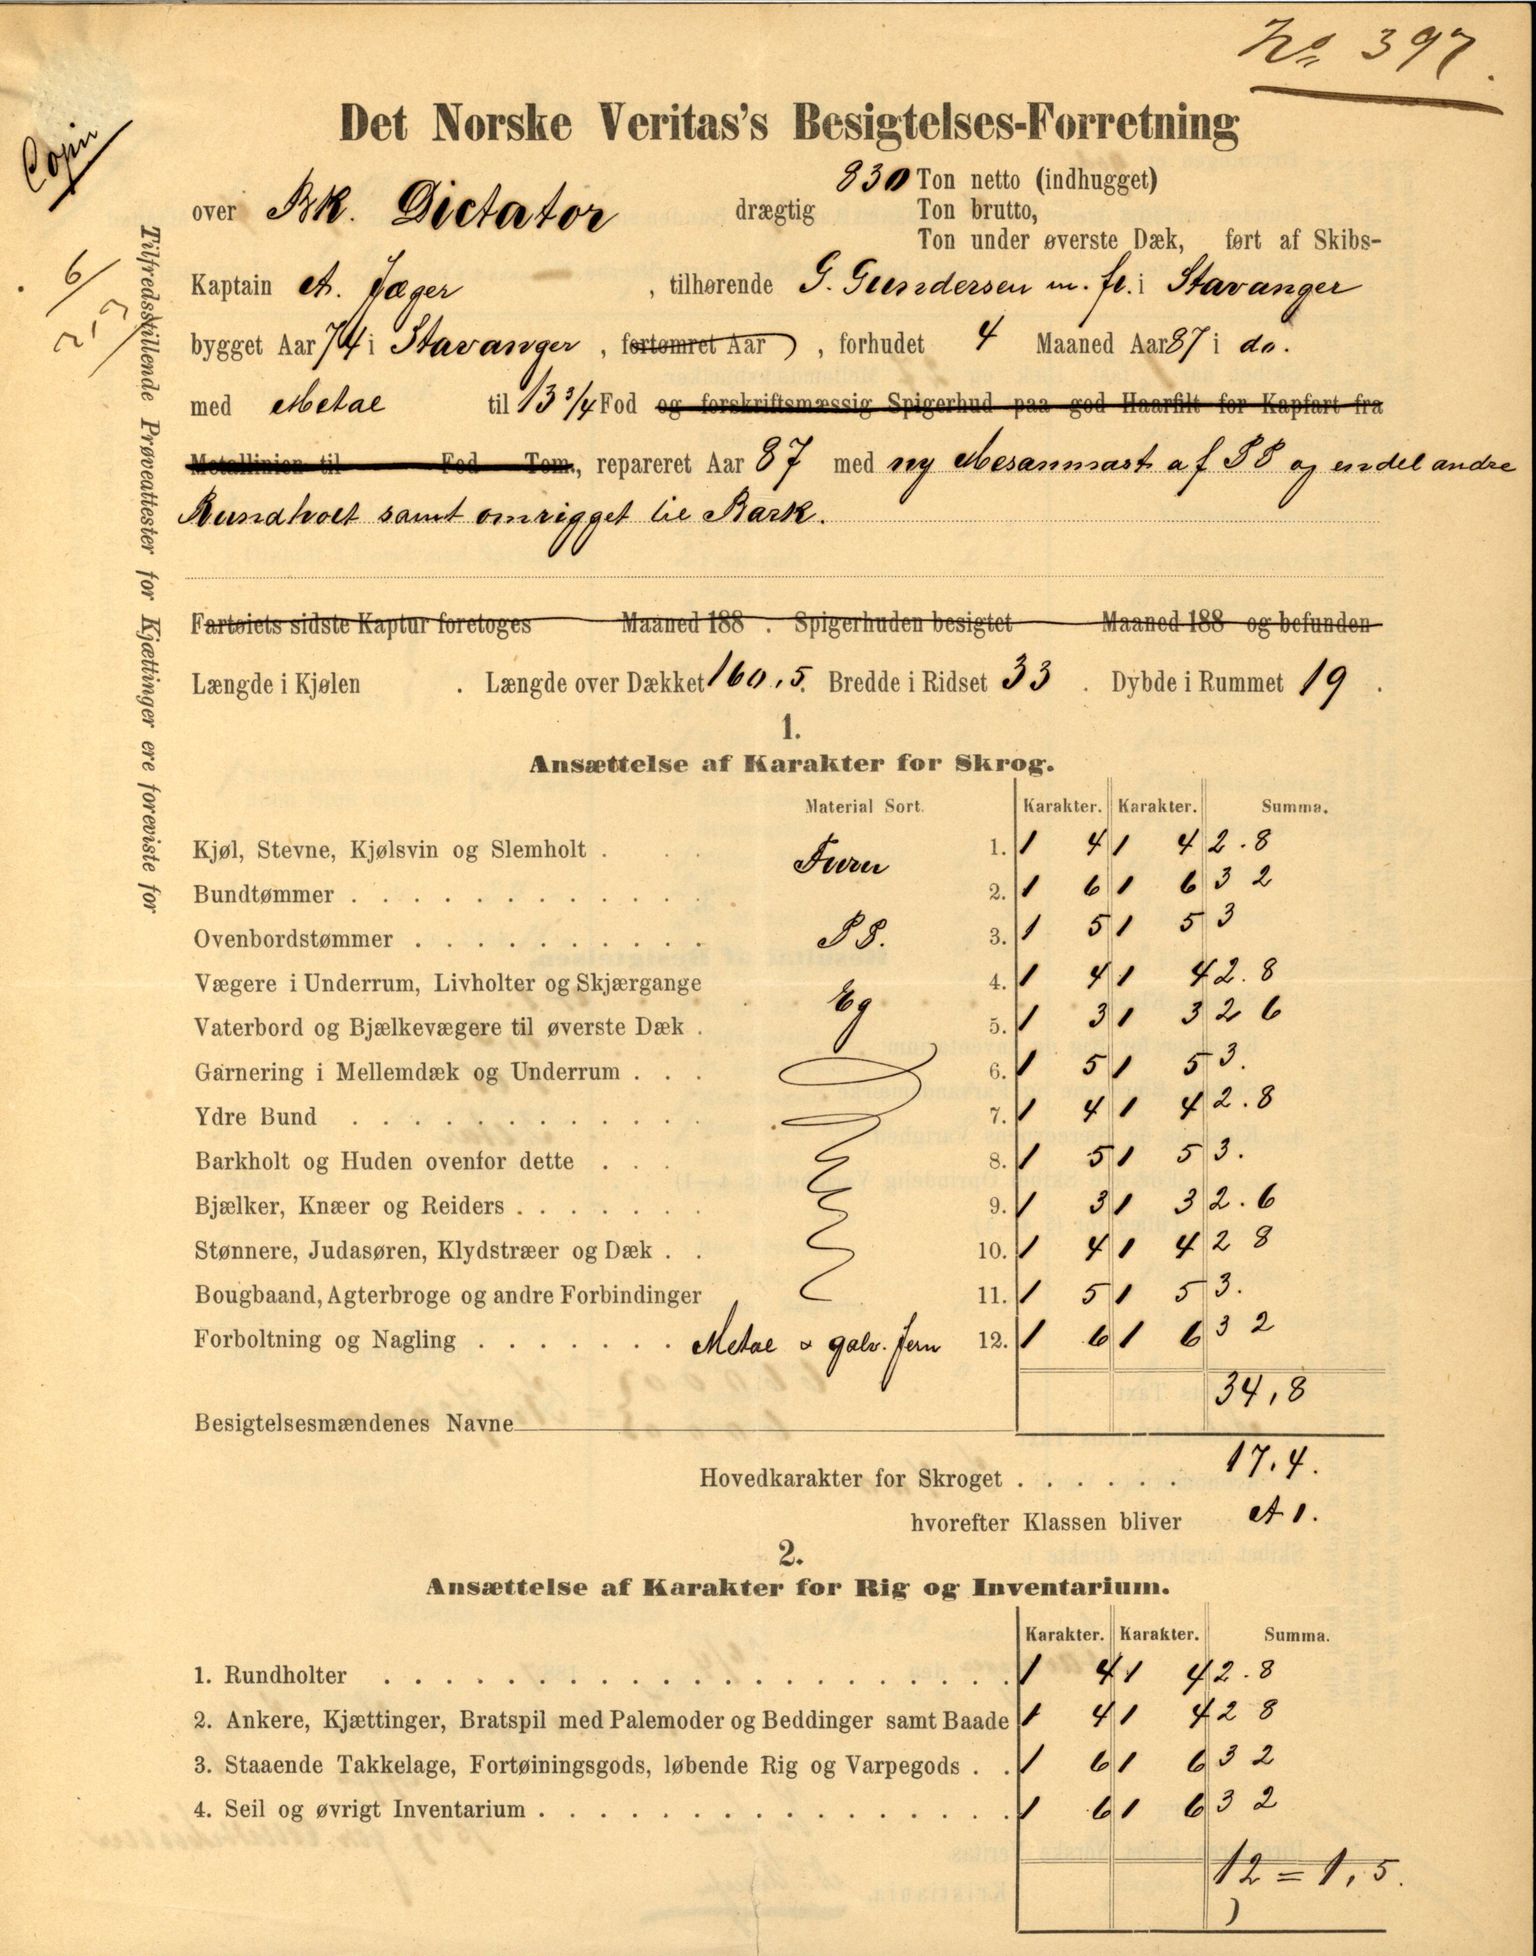 No 397.
Copi
Det Norske Veritas's Besigtelses-Forretning
830 Ton netto (indhugget)
over Bk. Dictator drægtig Ton brutto,
Ton under øverste Dæk, ført af Skibs-
Kaptain A. Jæger , tilhørende G. Gundersen m. fl. i Stavanger
bygget Aar 74 i Stavanger , fortømret Aar , forhudet 4 Maaned Aar 87 i do.
med Metal til 13 3/4 Fod og forskriftsmæssig Spigerhud paa god Haarfilt for Kapfart fra
Metallinien til Fod Tom., repareret Aar 87 med ny Mesanmast af PP og endel andre
Rundholt samt omrigget til Bark.
Fartøiets sidste Kaptur foretoges Maaned 188 . Spigerhuden besigtet Maaned 188 og befunden
Længde i Kjølen . Længde over Dækket 160,5. Bredde i Ridset 33 . Dybde i Rummet 19 .
Tilfredsstillende Prøveattester for Kjættinger ere foreviste for
1.
Ansættelse af Karakter for Skrog.
Material Sort. Karakter. Karakter. Summa.
Kjøl, Stevne, Kjølsvin og Slemholt . . . Furu 1. 1 4 1 4 2.8
Bundtømmer . . . . . . . . . 2. 1 6 1 6 3 2
Ovenbordstømmer . . . . . . . . PP. 3. 1 5 1 5 3
Vægere i Underrum, Livholter og Skjærgange 4. 1 4 1 4 2.8
Vaterbord og Bjælkevægere til øverste Dæk . Eg 5. 1 3 1 3 2 6
Garnering i Mellemdæk og Underrum . . . 6. 1 5 1 5 3.
Ydre Bund . . . . . . . . . 7. 1 4 1 4 2.8
Barkholt og Huden ovenfor dette . . . 8. 1 5 1 5 3.
Bjælker, Knæer og Reiders . . . . . . 9. 1 3 1 3 2.6
Stønnere, Judasøren, Klydstræer og Dæk . . 10. 1 4 1 4 2 8
Bougbaand, Agterbroge og andre Forbindinger 11. 1 5 1 5 3.
Forboltning og Nagling . . . . . . . Metal & galv. Jern 12. 1 6 1 6 3 2
34,8
Besigtelsesmændenes Navne
Hovedkarakter for Skroget . . . . . . 17,4.
hvorefter Klassen bliver A 1.
2.
Ansættelse af Karakter for Rig og Inventarium.
Karakter. Karakter. Summa.
1. Rundholter . . . . . . . . . . . . 1 4 1 4 2.8
2. Ankere, Kjættinger, Bratspil med Palemoder og Beddinger samt Baade 1 4 1 4 2 8
3. Staaende Takkelage, Fortøiningsgods, løbende Rig og Varpegods . . 1 6 1 6 3 2
4. Seil og øvrigt Inventarium . . . . . . . . . 1 6 1 6 3 2
12 = 1,5.